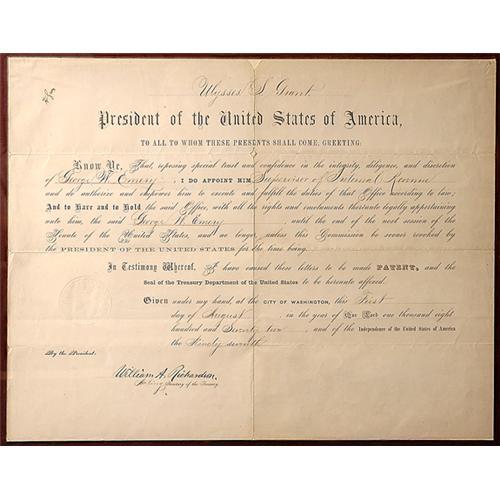 Ulysses S. Grant
President of the United States of America,
TO ALL TO WHOM THESE PRESENTS SHALL COME, GREETING:
Know Ye, That, reposing special trust and confidence in the integrity, diligence, and discretion
of George W. Emery, I DO APPOINT HIM Supervisor of Internal Revenue
and do authorize and empower him to execute and fulfil the duties of that Office according to law;
And to Have and to Hold the said Office, with all the rights and emoluments thereunto legally appertaining
unto him, the said George W. Emery until the end of the next session of the
Senate of the United States, and no longer, unless this Commission be sooner revoked by
the PRESIDENT OF THE UNITED STATES for the time being.
In Testimony Whereof, I have caused these letters to be made PATENT, and the
Seal of the Treasury Department of the United States to be hereunto affixed.
Given under my hand, at the CITY OF WASHINGTON, this First
day of August in the year of Our Lord one thousand eight
hundred and Seventy two, and of the Independence of the United States of America
the Ninety seventh
By the President:
William A. Richardson
Acting Secretary of the Treasury